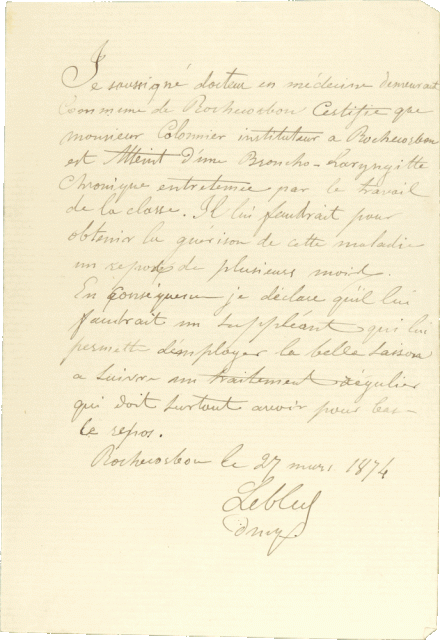 Je soussigné docteur en médecine demeurant
Commune de Rochecorbon Certifie que
monsieur Colonnier instituteur a Rochecorbon
est Atteint d'une Broncho-Laryngitte
Chronique entretenue par le travail
de la classe. Il lui faudrait pour
obtenir la guérison de cette maladie
un repos de plusieurs mois.
En conséquence je déclare qu'il lui
faudrait un suppléant qui lui
permette d'employer la belle saison
a suivre un traitement régulier
qui doit surtout avoir pour base
le repos.
Rochecorbon le 27 mars 1874